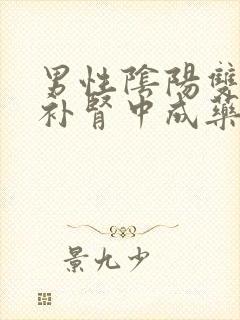 男性陰陽雙
补腎中成藥
景九少